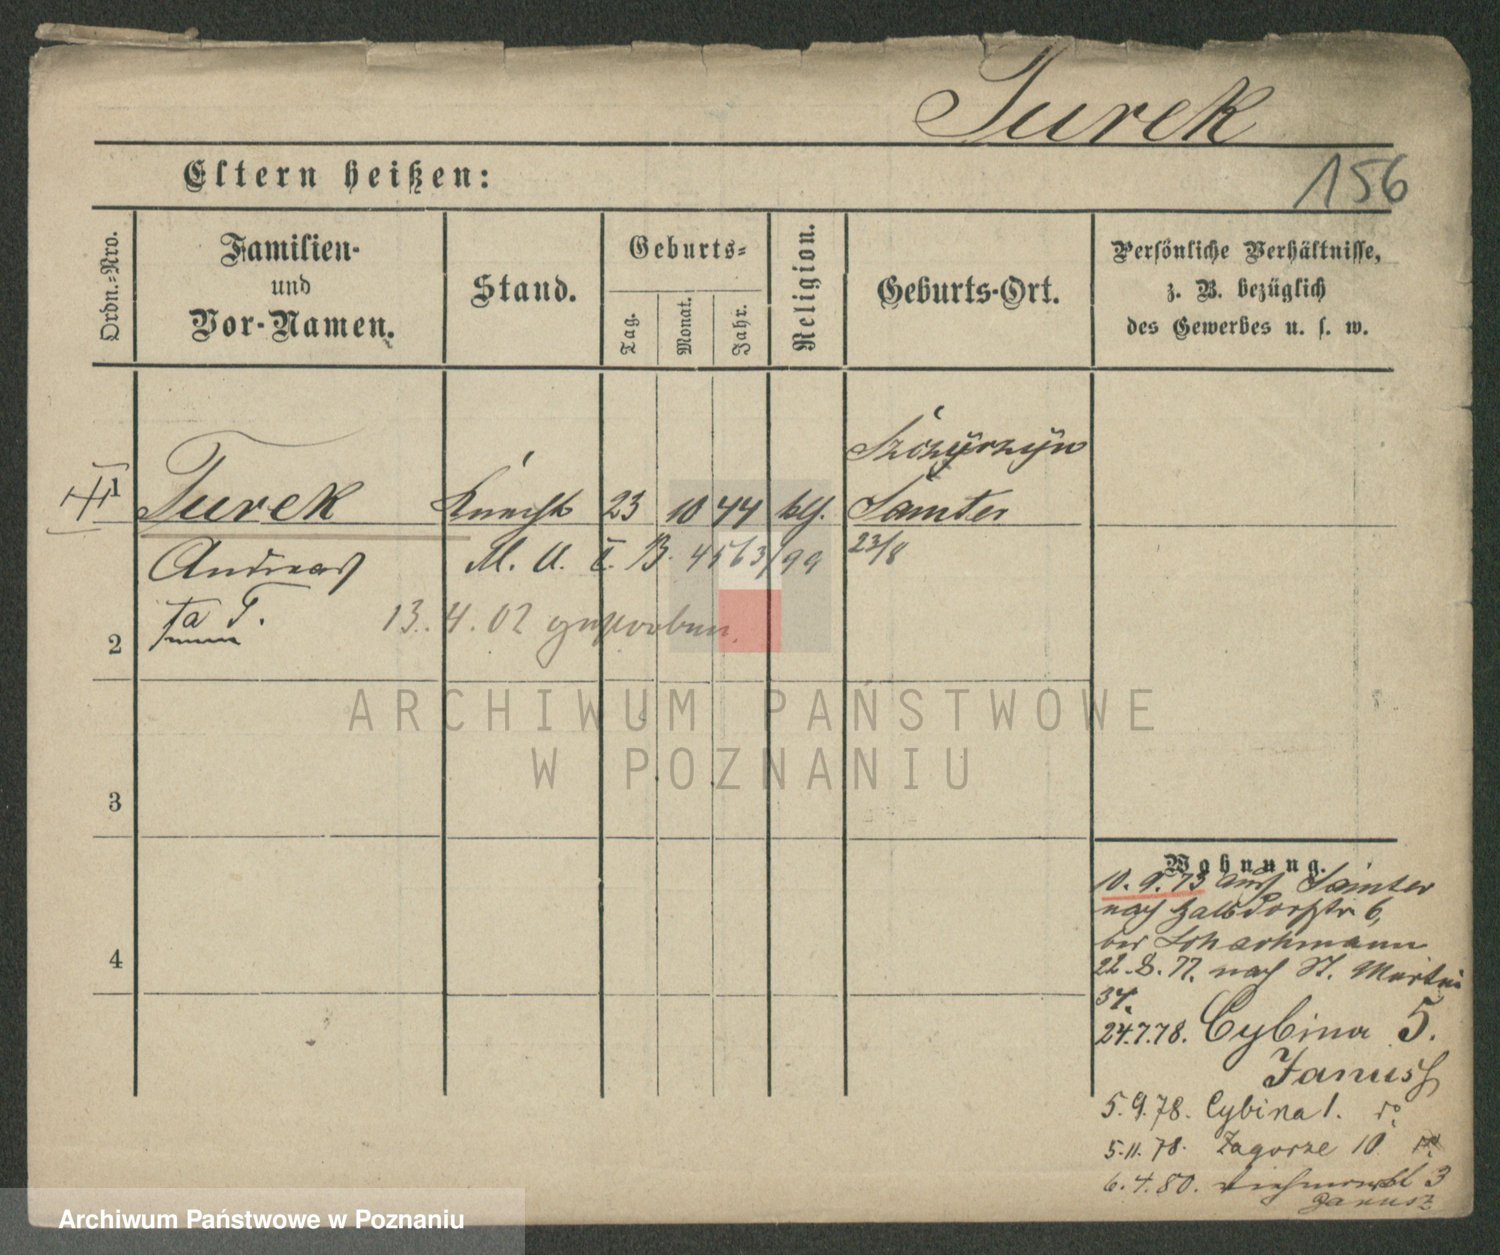 Turek
156
Eltern heißen:
Ordn.-Nro.
Familien-
und
Vor-Namen.
Stand.
Geburts-
Tag.
Monat.
Jahr.
Religion.
Geburts-Ort.
Persönliche Verhältnisse,
z. B. bezüglich
des Gewerbes u. s. w.
1 Turek Knecht 23 10 44 klg. Samter
Andreas M. A. I. B. 4563/99 23/8
fa T. 13.4.02 gestorben.
2
3
4
ARCHIWUM PAŃSTWOWE
W POZNANIU
Wohnung.
10.9.73 aus Samter
nach Halbdorfstr 6,
bei
22.8.77. nach St. Martin
37.
24.7.78. Cybina 5.
Janusz
5.9.78. Cybina 1. do
5.11.78. Zagorze 10 do
6.4.80. 3
Janusz
Archiwum Państwowe w Poznaniu